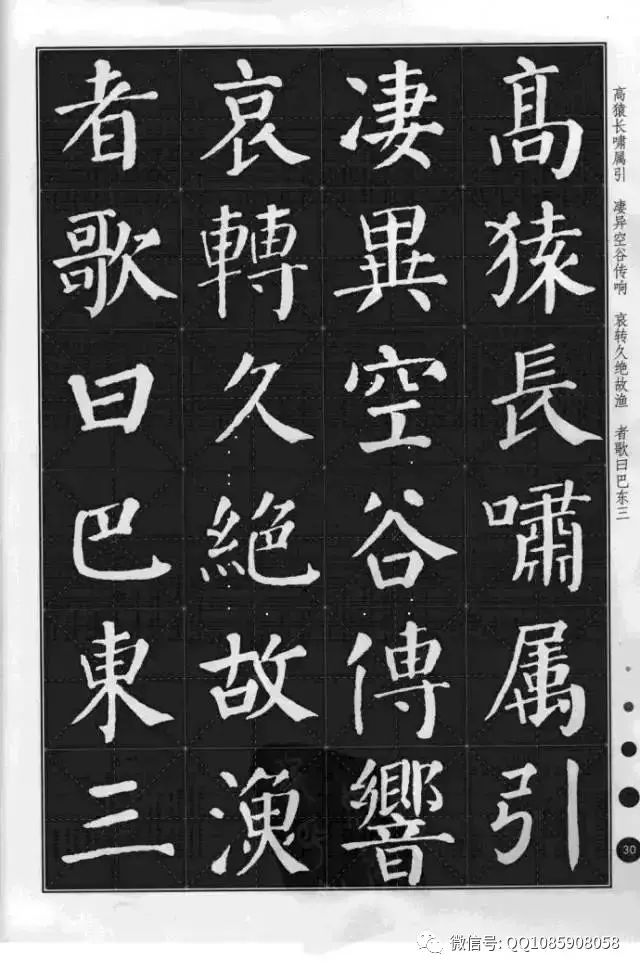 高猿長嘯属引
凄異空谷傳響
哀轉久絶故漁
者歌曰巴東三
高猿长啸属引 凄异空谷传响 哀转久绝故渔 者歌曰巴东三
30
微信号: QQ1085908058